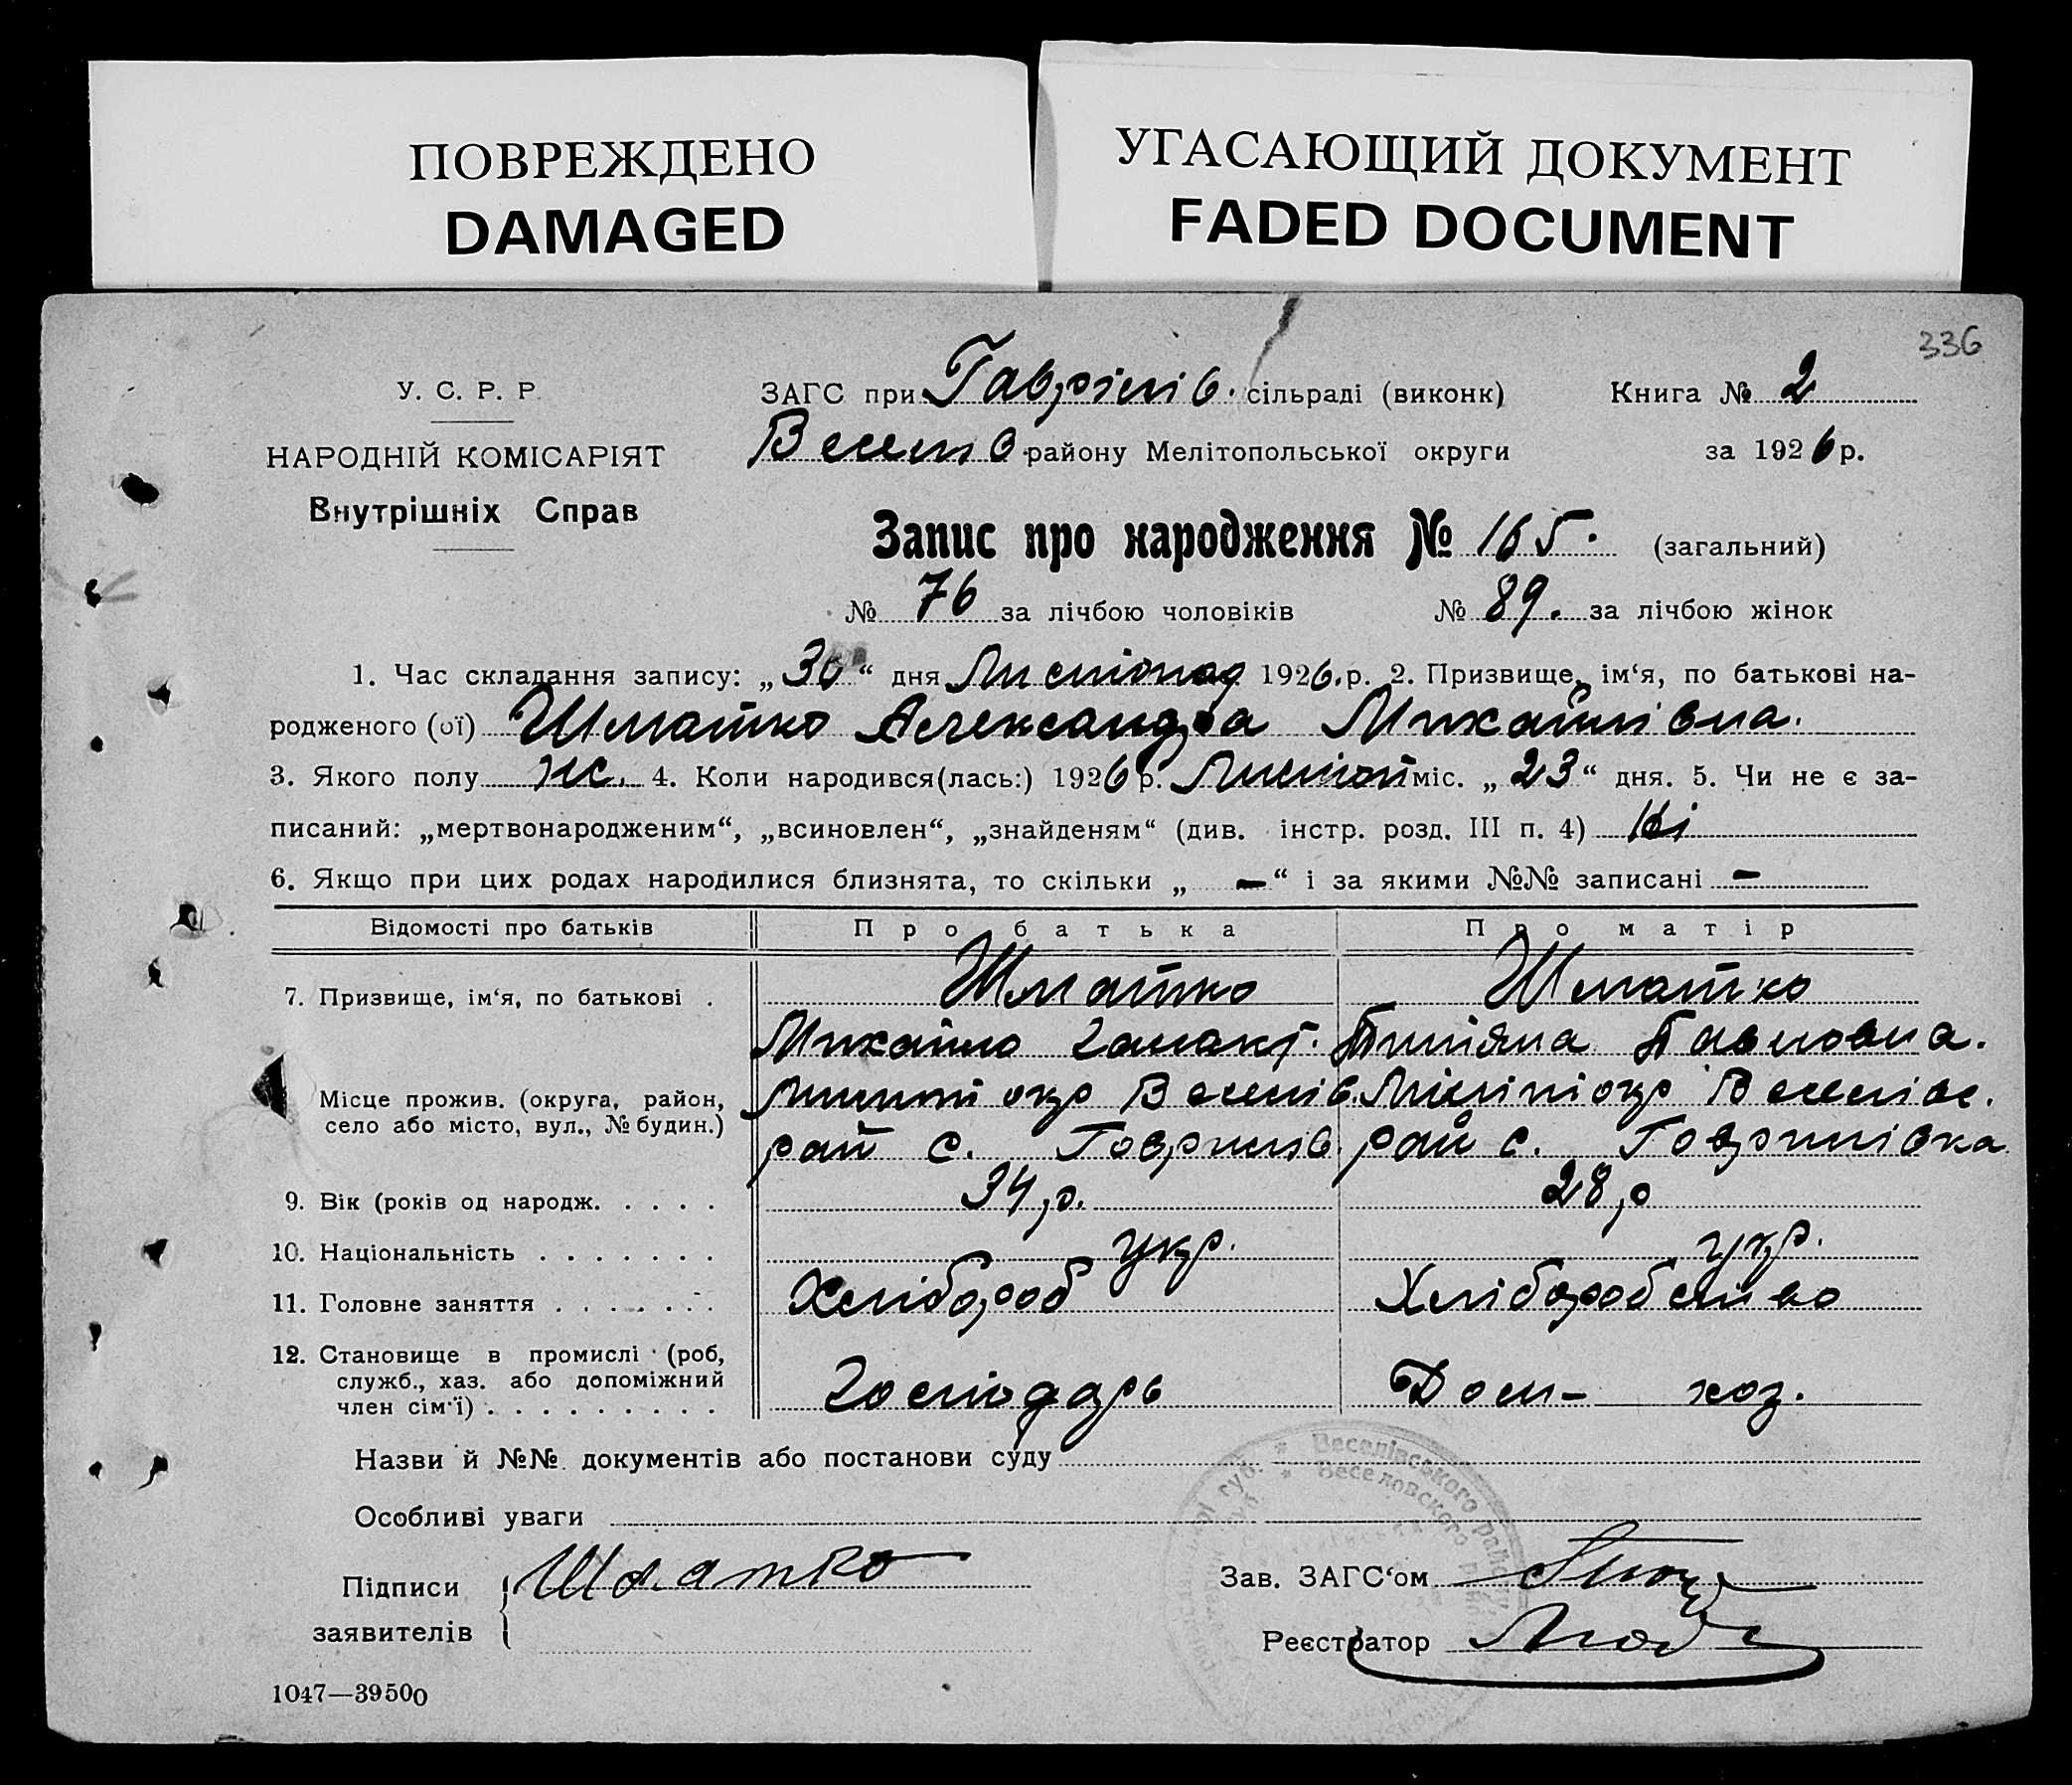 ПОВРЕЖДЕНО
DAMAGED
УГАСАЮЩИЙ ДОКУМЕНТ
FADED DOCUMENT
336
У. С. Р. Р.
НАРОДНІЙ КОМІСАРІЯТ
Внутрішніх Справ
ЗАГС при Гаврілів. сільраді (виконк) Книга № 2
Веселів району Мелітопольської округи за 1926 р.
Запис про народження № 165. (загальний)
№ 76 за лічбою чоловіків № 89. за лічбою жінок
1. Час складання запису: „30“ дня Листопад 1926.р. 2. Призвище, ім‘я, по батькові на-
родженого (ої) Шматко Александра Михайлівна.
3. Якого полу ж. 4. Коли народився(лась:) 1926 р. Листоп міс. „23“ дня. 5. Чи не є за-
писаний: „мертвонародженим“, „всиновлен“, „знайденям“ (див. інстр. розд. III п. 4) Ні
6. Якщо при цих родах народилися близнята, то скільки „—“ і за якими №№ записані —
Відомості про батьків Про батька Про матір
7. Призвище, ім‘я, по батькові . Шматко Шматко
Михайло Павловна.
Місце прожив. (округа, район, окр Веселів. окр Веселівс.
село або місто, вул., № будин.) рай с. Гаврилів. рай с. Гаврилівка
9. Вік (років од народж. . . . . 34 р. 28 р
10. Національність . . . . . . . укр. укр.
11. Головне заняття . . . . . . . Хлібороб Хліборобство
12. Становище в промислі (роб,
служб., хаз. або допоміжний Господарь Дом- хоз.
член сім‘ї) . . . . . . . . .
Назви й №№ документів або постанови суду
Особливі уваги
Підписи Шматко Зав. ЗАГС‘ом
заявителів Реєстратор
Веселівського
Веселовского
1047—39500